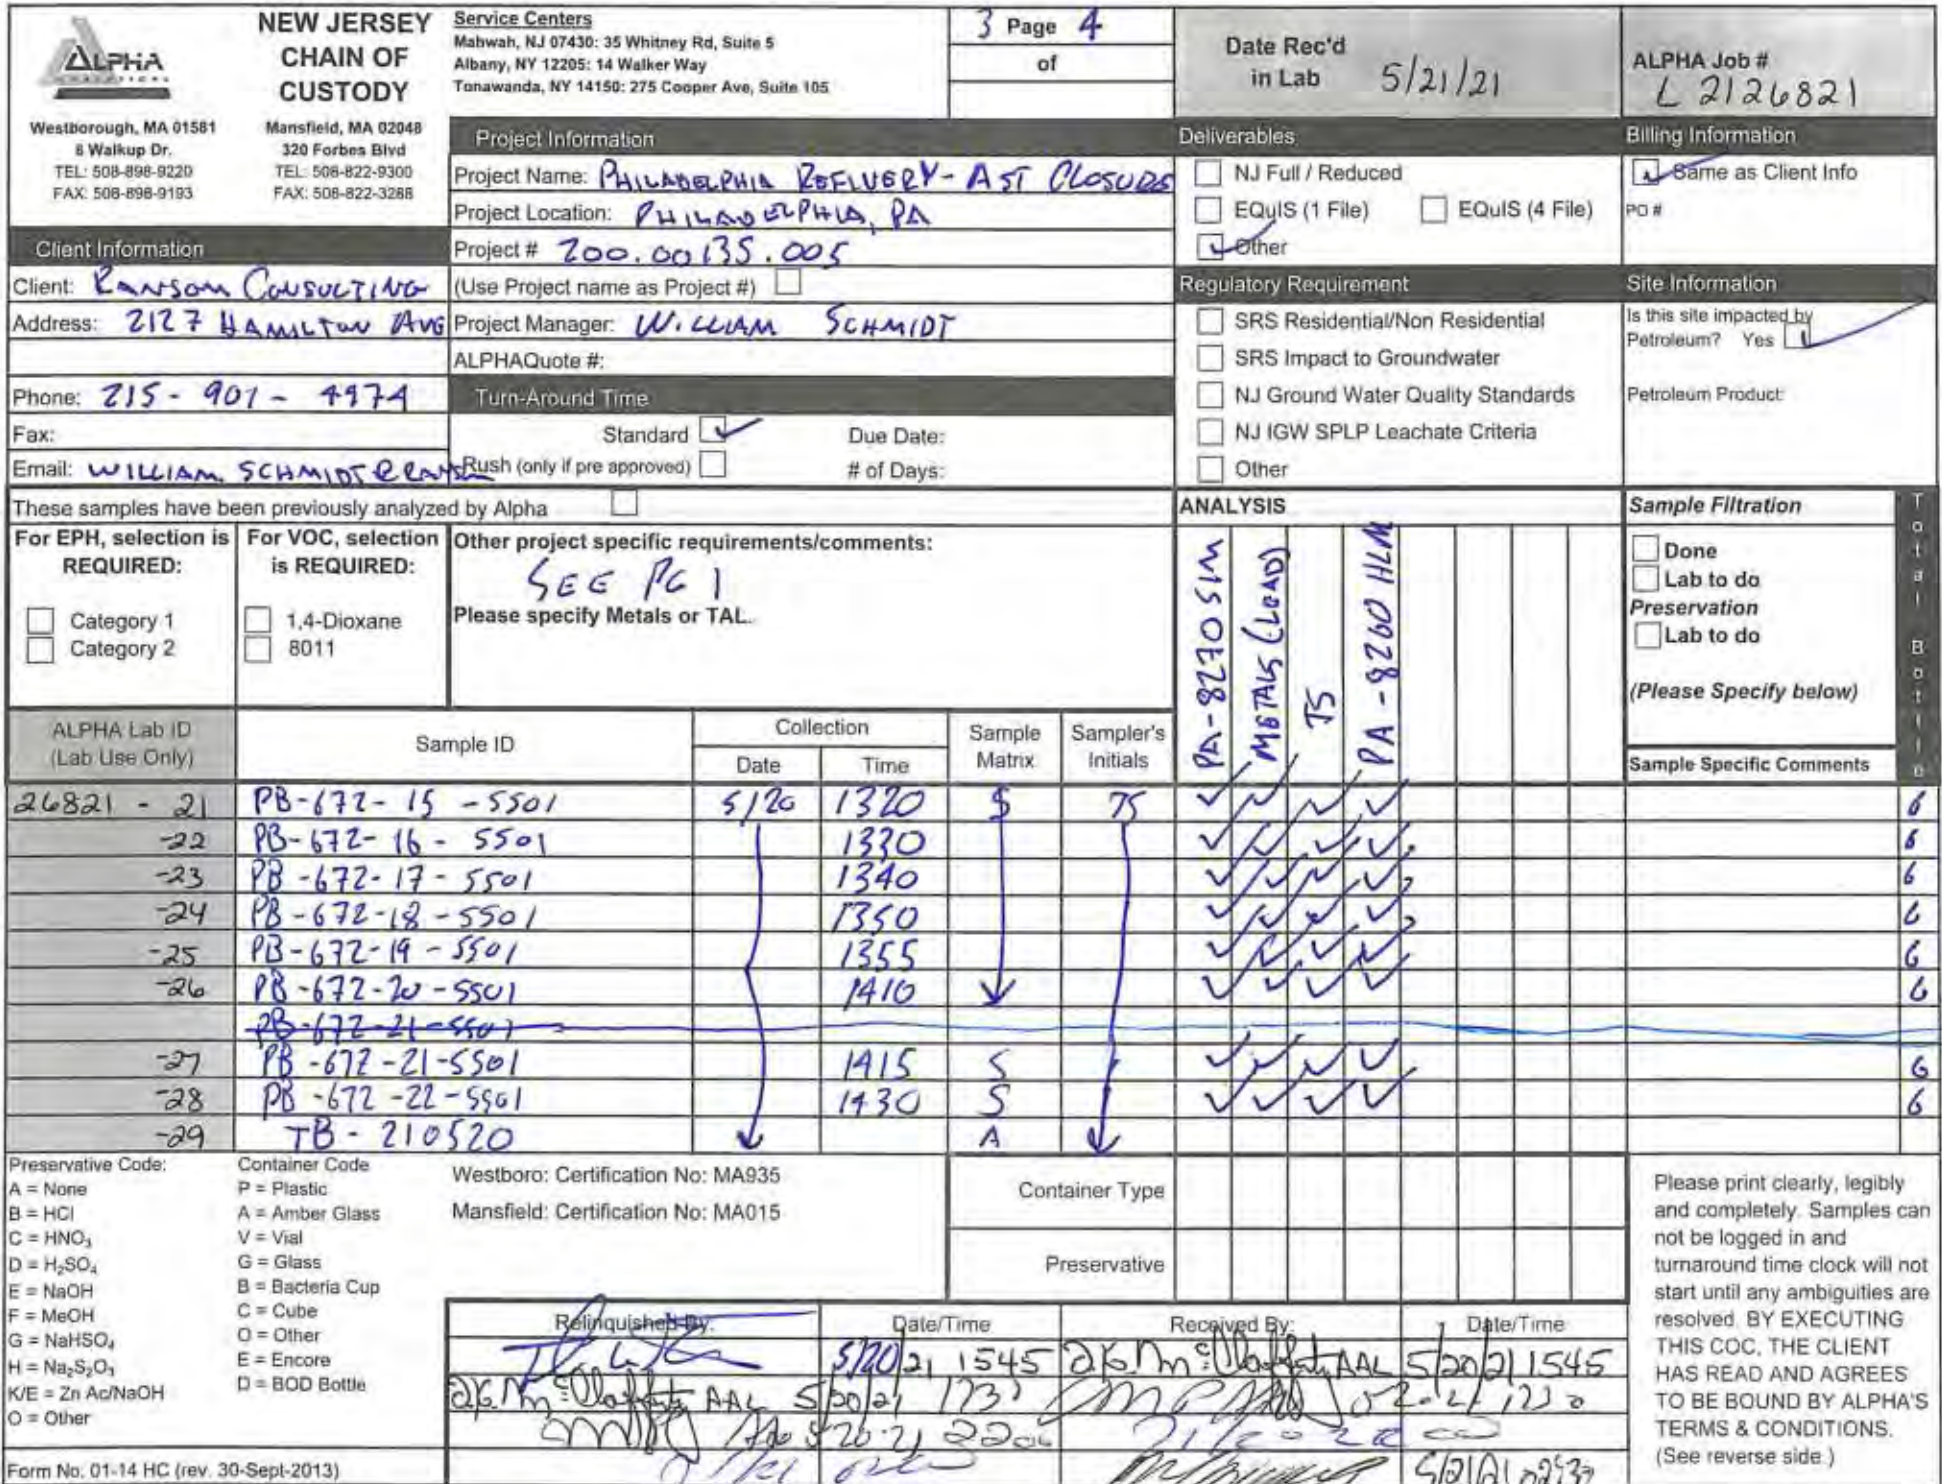 ALPHA
NEW JERSEY
CHAIN OF
CUSTODY
Westborough, MA 01581
8 Walkup Dr.
TEL: 508-898-9220
FAX: 508-898-9193
Mansfield, MA 02048
320 Forbes Blvd
TEL: 508-822-9300
FAX: 508-822-3288
Service Centers
Mahwah, NJ 07430: 35 Whitney Rd, Suite 5
Albany, NY 12205: 14 Walker Way
Tonawanda, NY 14150: 275 Cooper Ave, Suite 105
3 Page 4
of
Date Rec'd
in Lab 5/21/21
ALPHA Job #
L2126821
Client Information
Client: RANSOM CONSULTING
Address: 2127 HAMILTON AVE
Phone: 215-901-4974
Fax:
Email: WILLIAM.SCHMIDT@
Project Information
Project Name: PHILADELPHIA REFINERY - AST CLOSURE
Project Location: PHILADELPHIA, PA
Project # 200.00135.005
(Use Project name as Project #)
Project Manager: WILLIAM SCHMIDT
ALPHAQuote #:
Turn-Around Time
Standard Due Date:
Rush (only if pre approved) # of Days:
Deliverables
NJ Full / Reduced
EQuIS (1 File) EQuIS (4 File)
Other
Regulatory Requirement
SRS Residential/Non Residential
SRS Impact to Groundwater
NJ Ground Water Quality Standards
NJ IGW SPLP Leachate Criteria
Other
Billing Information
Same as Client Info
PO #
Site Information
Is this site impacted by
Petroleum? Yes
Petroleum Product:
These samples have been previously analyzed by Alpha
For EPH, selection is
REQUIRED:
Category 1
Category 2
For VOC, selection
is REQUIRED:
1,4-Dioxane
8011
Other project specific requirements/comments:
SEE PG 1
Please specify Metals or TAL.
ANALYSIS
PA-8270 SIM
METALS (LEAD)
TS
PA-8260 HLM
Sample Filtration
Done
Lab to do
Preservation
Lab to do
(Please Specify below)
Total Bottle
ALPHA Lab ID
(Lab Use Only)
Sample ID
Collection
Date Time
Sample
Matrix
Sampler's
Initials
Sample Specific Comments
26821 - 21 PB-672-15-SS01 5/20 1320 S TS 6
-22 PB-672-16-SS01 1330 6
-23 PB-672-17-SS01 1340 6
-24 PB-672-18-SS01 1350 6
-25 PB-672-19-SS01 1355 6
-26 PB-672-20-SS01 1410 6
PB-672-21-SS01
-27 PB-672-21-SS01 1415 S 6
-28 PB-672-22-SS01 1430 S 6
-29 TB-210520 A
Preservative Code:
A = None
B = HCl
C = HNO₃
D = H₂SO₄
E = NaOH
F = MeOH
G = NaHSO₄
H = Na₂S₂O₃
K/E = Zn Ac/NaOH
O = Other
Container Code
P = Plastic
A = Amber Glass
V = Vial
G = Glass
B = Bacteria Cup
C = Cube
O = Other
E = Encore
D = BOD Bottle
Westboro: Certification No: MA935
Mansfield: Certification No: MA015
Container Type
Preservative
Relinquished By: Date/Time Received By: Date/Time
5/20/21 1545 AAL 5/20/21 1545
AAL 5/20/21
5-20-21
Please print clearly, legibly
and completely. Samples can
not be logged in and
turnaround time clock will not
start until any ambiguities are
resolved. BY EXECUTING
THIS COC, THE CLIENT
HAS READ AND AGREES
TO BE BOUND BY ALPHA'S
TERMS & CONDITIONS.
(See reverse side.)
Form No. 01-14 HC (rev. 30-Sept-2013)